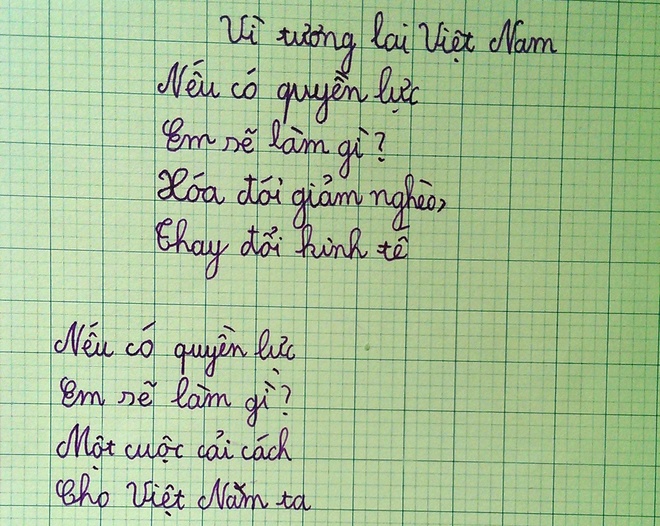 Vì tương lai Việt Nam
Nếu có quyền lực
Em sẽ làm gì?
Xóa đói giảm nghèo,
Thay đổi kinh tế
Nếu có quyền lực
Em sẽ làm gì?
Một cuộc cải cách
Cho Việt Nam ta